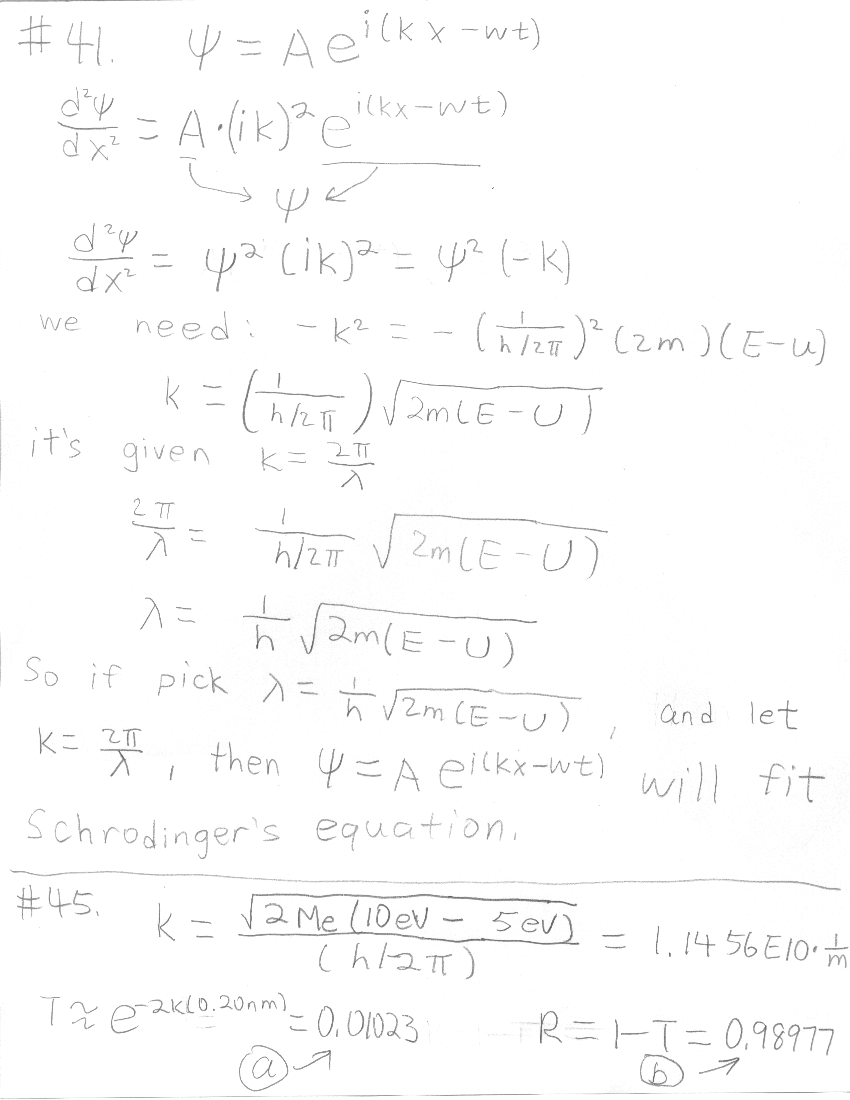 #41. ψ = Ae^i(kx-wt)
d²ψ/dx² = A·(ik)² e^i(kx-wt)
ψ
d²ψ/dx² = ψ² (ik)² = ψ² (-k)
we need: -k² = -(1/h/2π)² (2m)(E-U)
k = (1/h/2π) √2m(E-U)
it's given k = 2π/λ
2π/λ = 1/h/2π √2m(E-U)
λ = 1/h √2m(E-U)
So if pick λ = 1/h √2m(E-U), and let
k = 2π/λ, then ψ = A e^i(kx-wt) will fit
Schrodinger's equation.
#45. k = √2Me(10eV - 5eV)/(h/2π) = 1.1456E10·1/m
T ≈ e^-2k(0.20nm) = 0.01023 R = 1-T = 0.98977
ⓐ ⓑ